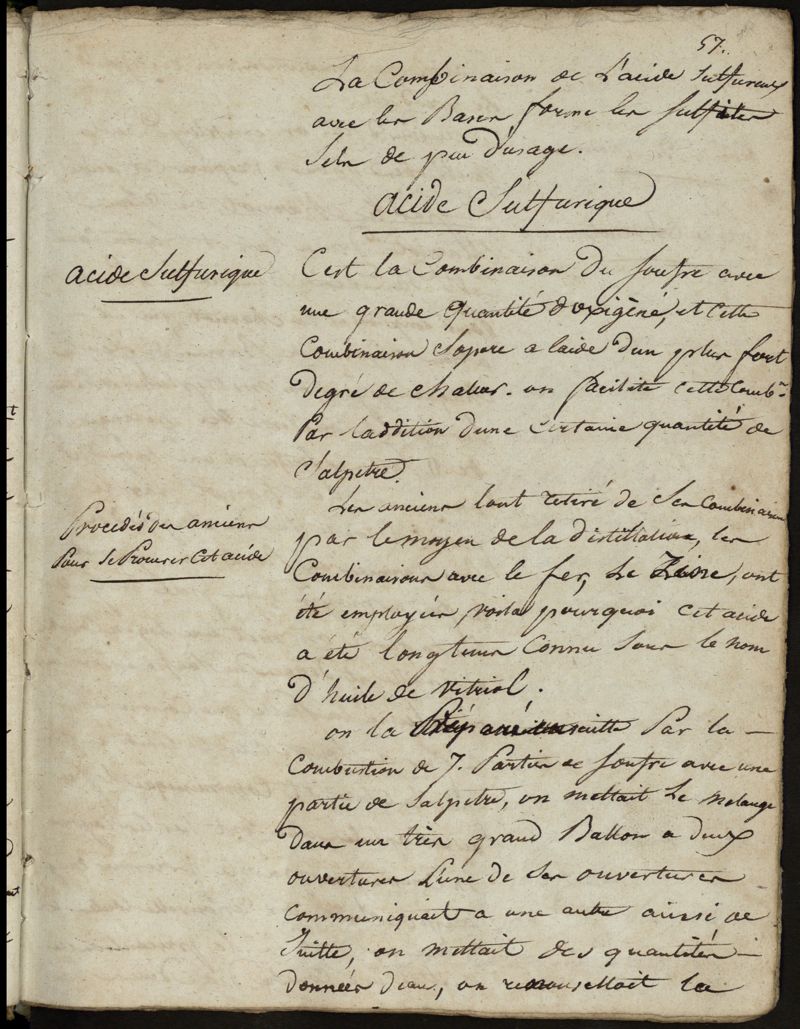 57.
La Combinaison de L'acide Sulfureux
avec les Bases forme les sulfites
Sels de peu d'usage.
acide Sulfurique
acide Sulfurique
C'est la Combinaison Du soufre avec
une grande quantité d'oxigéné, et cette
Combinaison S'opere a laide d'un plus fort
degré de chaleur. on facilite cette comb.n
Par laddition d'une certaine quantité de
Salpetre.
Procedés des anciens
Pour se Procurer Cet acide
Les anciens lont retiré de Ses Combinaisons
par le moyen de la distillation, les
Combinaisons avec le fer, Le Zinc, ont
été employées, voila pourquoi cet acide
a été longtems Connu sous le nom
D'huile de vitriol.
on la Préparé ensuitte Par la
Combustion de 7. Parties de soufre avec une
partie de Salpetre, on mettait Le melange
Dans un très grand Ballon a deux
ouvertures L'une de Ses ouvertures
Communiquait a une autre aussi de
Suitte, on mettait des quantités
données d'eau, on renouvellait la